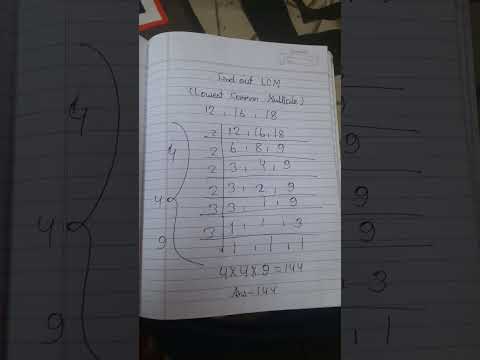 Find out LCM
(Lowest Common Multiple)
12, 16, 18
2 | 12, 16, 18
2 | 6, 8, 9
2 | 3, 4, 9
2 | 3, 2, 9
3 | 3, 1, 9
3 | 1, 1, 3
1, 1, 1
4
4
9
4×4×9=144
Ans-144